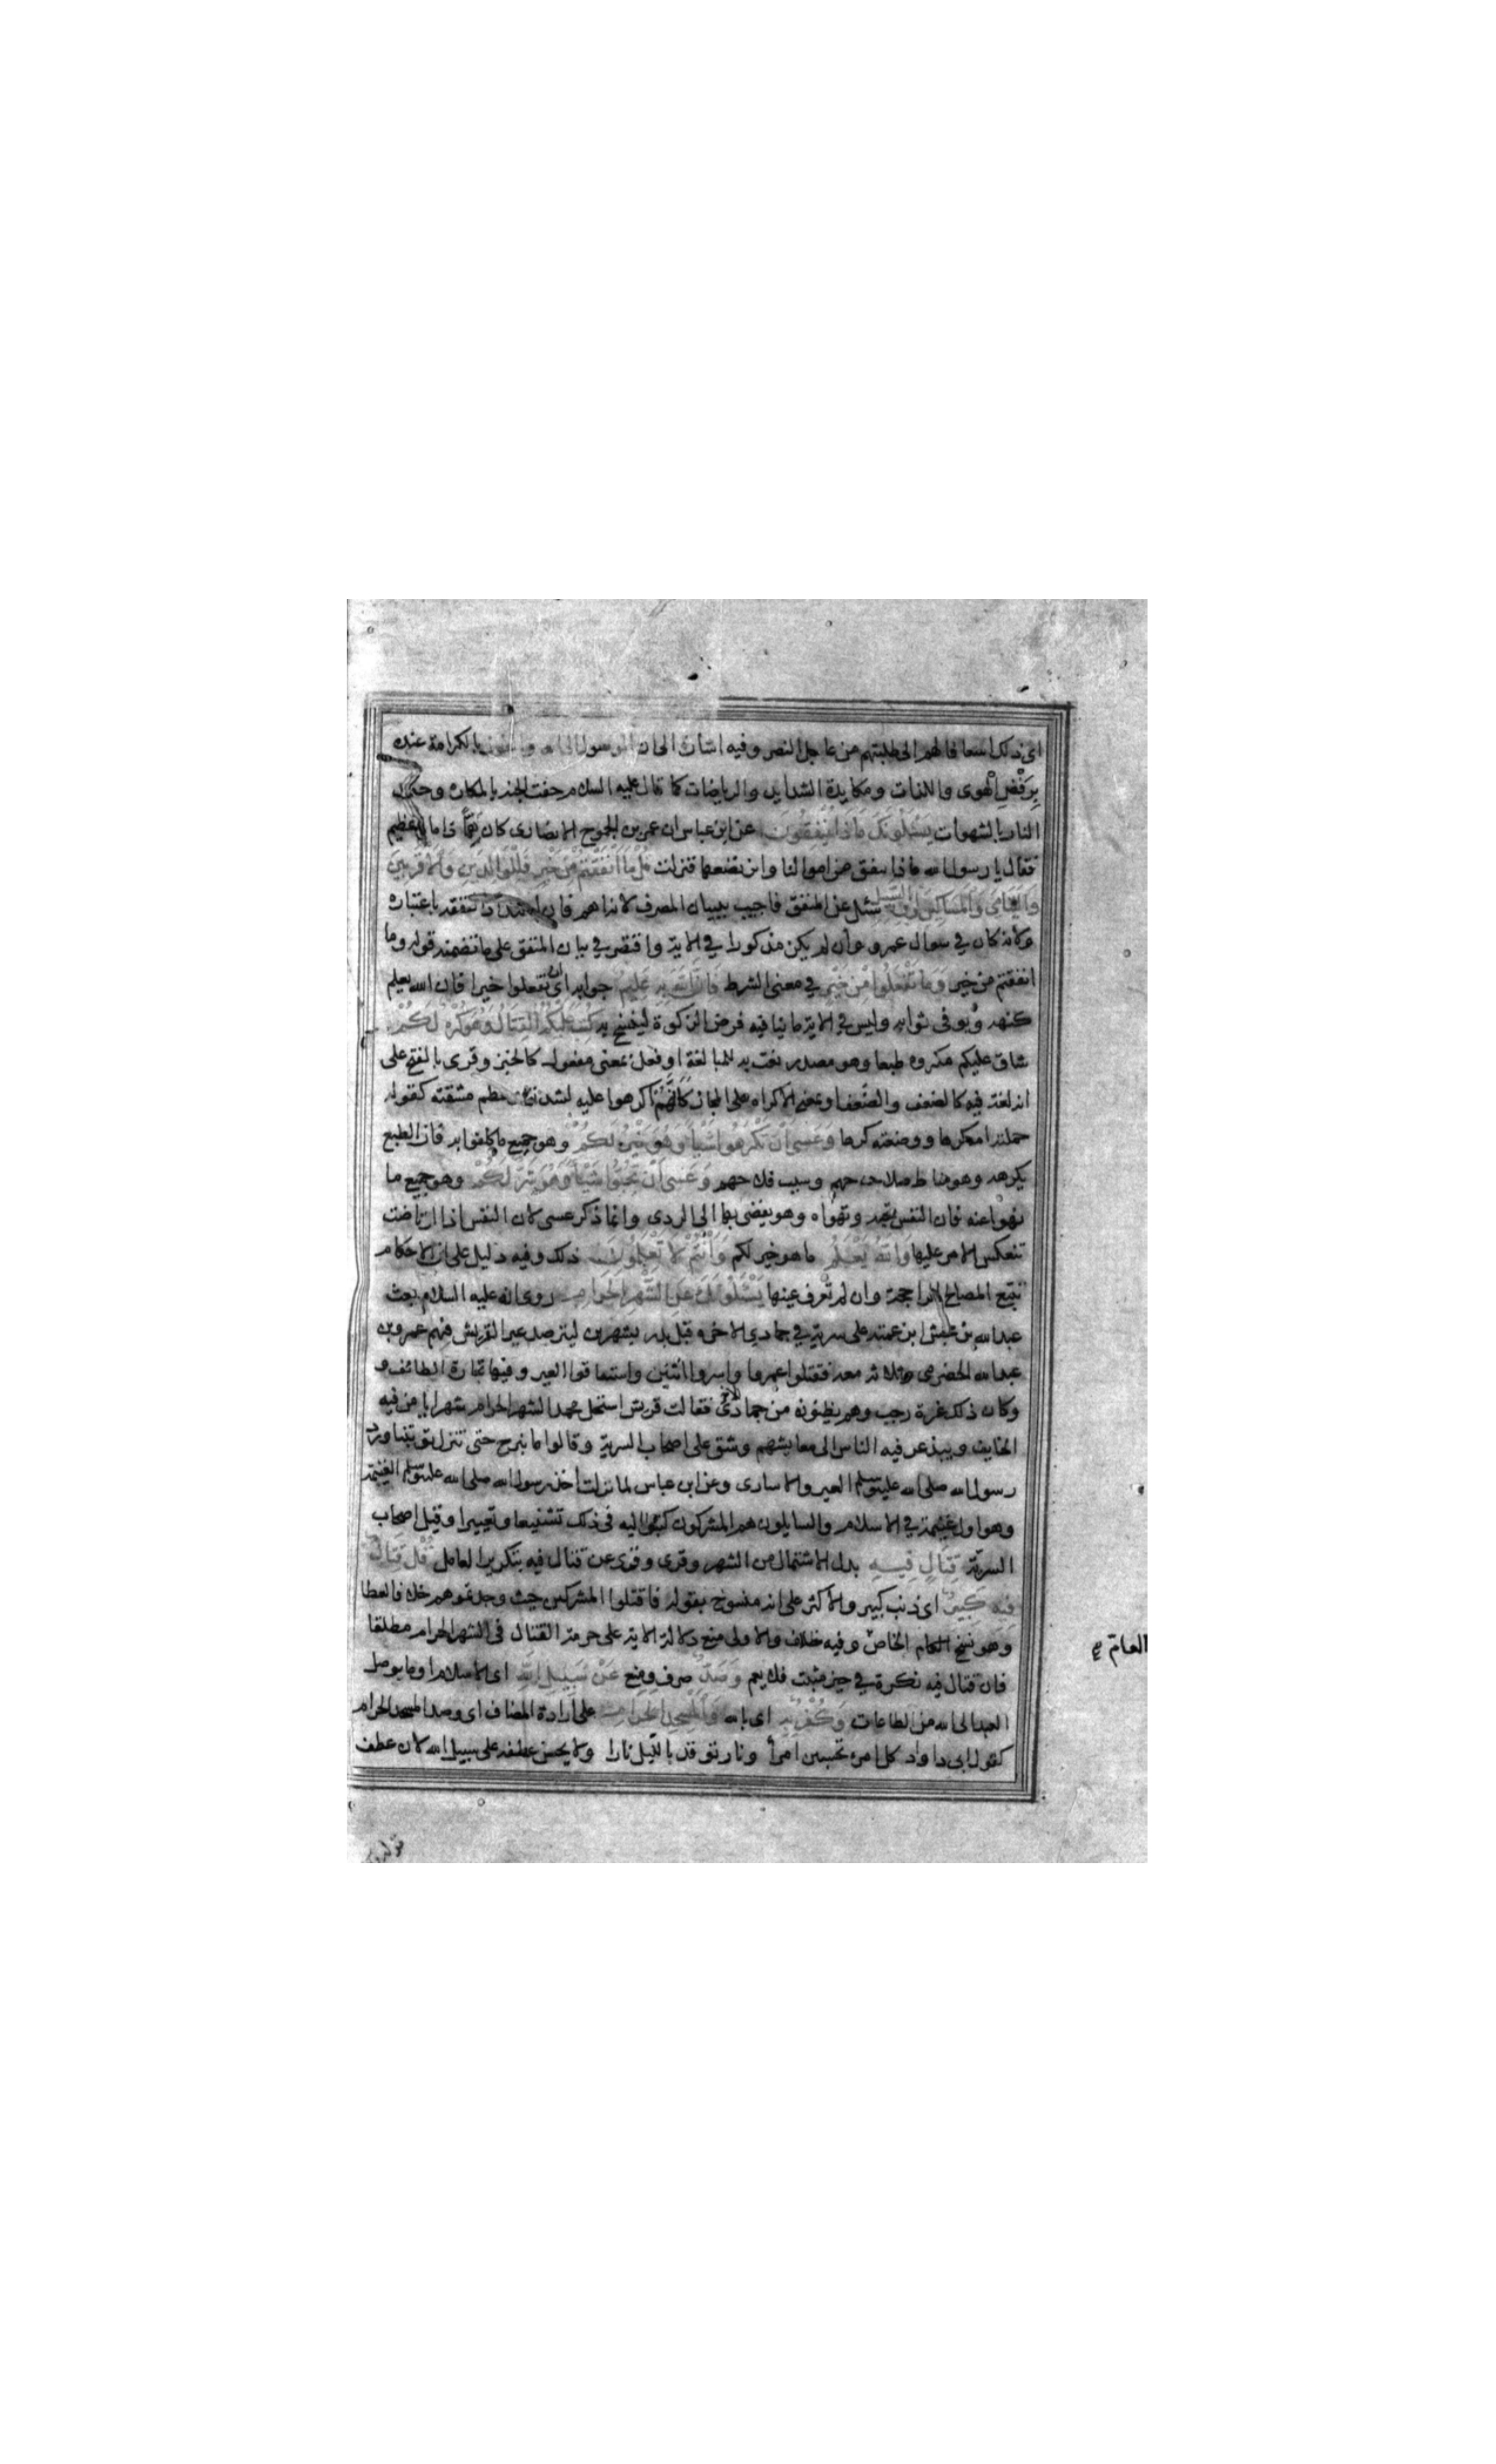 اى ذلك اسعافا لهم الى طلبتهم من عاجل النصر وفيه اشارة الى ان الوصول الى الله والفوز بالكرامة عنده
برفض الهوى واللذات ومكايدة الشدايد والرياضات كما قال عليه السلام حفت الجنة بالمكاره وحفت
النار بالشهوات يسئلونك ماذا ينفقون عن ابن عباس ان عمرو بن الجموح الانصارى كان هما ذا مال عظيم
فقال يا رسول الله ماذا ننفق من اموالنا واين نضعها فنزلت قل ما انفقتم من خير فللوالدين والاقربين
واليتامى والمساكين وابن السبيل سئل عن المنفق فاجيب ببيان المصرف لانه اهم فان اعتداد النفقة باعتباره
ولانه كان في سوال عمرو وان لم يكن مذكورا في الاية واقتصر في بيان المنفق على ما تضمنه قوله وما
انفقتم من خير وما تفعلوا من خير في معنى الشرط فان الله به عليم جوابه اى ان تفعلوا خيرا فان الله يعلم
كنهه ويوفى ثوابه وليس في الاية ما ينافيه فرض الزكوة لينسخ به كتب عليكم القتال وهو كره لكم
شاق عليكم مكروه طبعا وهو مصدر نعت به للمبالغة او فعل بمعنى مفعول كالخبز وقرى بالفتح على
انه لغة فيه كالضعف والضعف او بمعنى الاكراه على المجاز كانهم اكرهوا عليه لشدته وعظم مشقته كقوله
حملته امه كرها ووضعته كرها وعسى ان تكرهوا شيا وهو خير لكم وهو جميع ما كلفوا به فان الطبع
يكرهه وهو مناط صلاحهم وسبب فلاحهم وعسى ان تحبوا شيأ وهو شر لكم وهو جميع ما
نهوا عنه فان النفس تحبه وتهواه وهو يفضى بها الى الردى وانما ذكر عسى لان النفس اذا ارتاضت
تنعكس الامر عليها والله يعلم ما هو خير لكم وانتم لا تعلمون ذلك وفيه دليل على ان الاحكام
تتبع المصالح الراجحة وان لم تعرف عينها يسئلونك عن الشهر الحرام روى انه عليه السلام بعث
عبد الله بن جحش ابن عمته على سرية في جمادي الاخرى قبل بدر بشهرين ليترصد عيرا لقريش فيهم عمرو بن
عبد الله الحضرمى وثلاثة معه فقتلوا عمرها واسروا اثنين واستاقوا العير وفيها تجارة الطائف و
وكان ذلك غرة رجب وهم يظنونه من جمادى الاخرى فقالت قريش استحل محمد الشهر الحرام شهرا يامن فيه
الخايف ويبذعر فيه الناس الى معايشهم وشق على اصحاب السرية وقالوا ما نبرح حتى تنزل توبتنا ورد
رسول الله صلى الله عليه وسلم العير والاسارى وعن ابن عباس لما نزلت اخذ رسول الله صلى الله عليه وسلم الغنيمة
وهو اول غنيمة في الاسلام والسايلون هم المشركون كتبوا اليه فى ذلك تشنيعا وتعييرا وقيل اصحاب
السرية قتال فيه بدل الاشتمال من الشهر وقرى وقرى عن قتال فيه بتكرير العامل قل قتال
فيه كبير اى ذنب كبير والاكثر على انه منسوخ بقوله فاقتلوا المشركين حيث وجدتموهم خلافا لعطا
وهو نسخ العام الخاص وفيه خلاف والاولى منع دلالة الاية على حرمة القتال فى الشهر الحرام مطلقا
العامّ
فان قتال فيه نكرة في حيز مثبت فلا يعم وصد صرف ومنع عن سبيل الله اى الاسلام او ما يوصل
العبد الى الله من الطاعات وكفر به اى بالله والمسجد الحرام على ارادة المضاف اى وصد المسجد الحرام
كقول ابى داواد كل امرء تحسبين امرأ ونار توقد بالليل نارا ولا يحسن عطفه على سبيل الله لان عطف